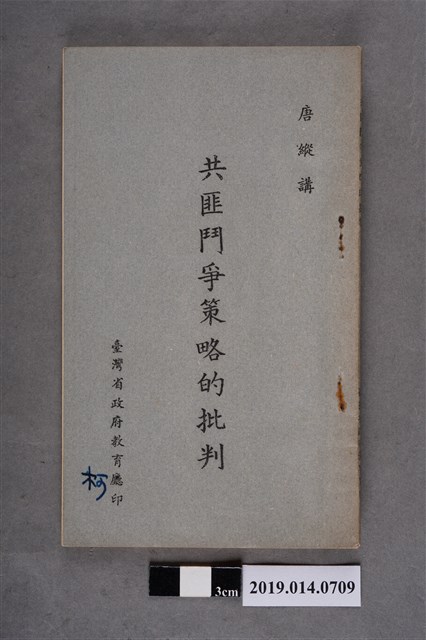 唐縱講
共匪鬥爭策略的批判
臺灣省政府教育廳印
柯
3cm
2019.014.0709